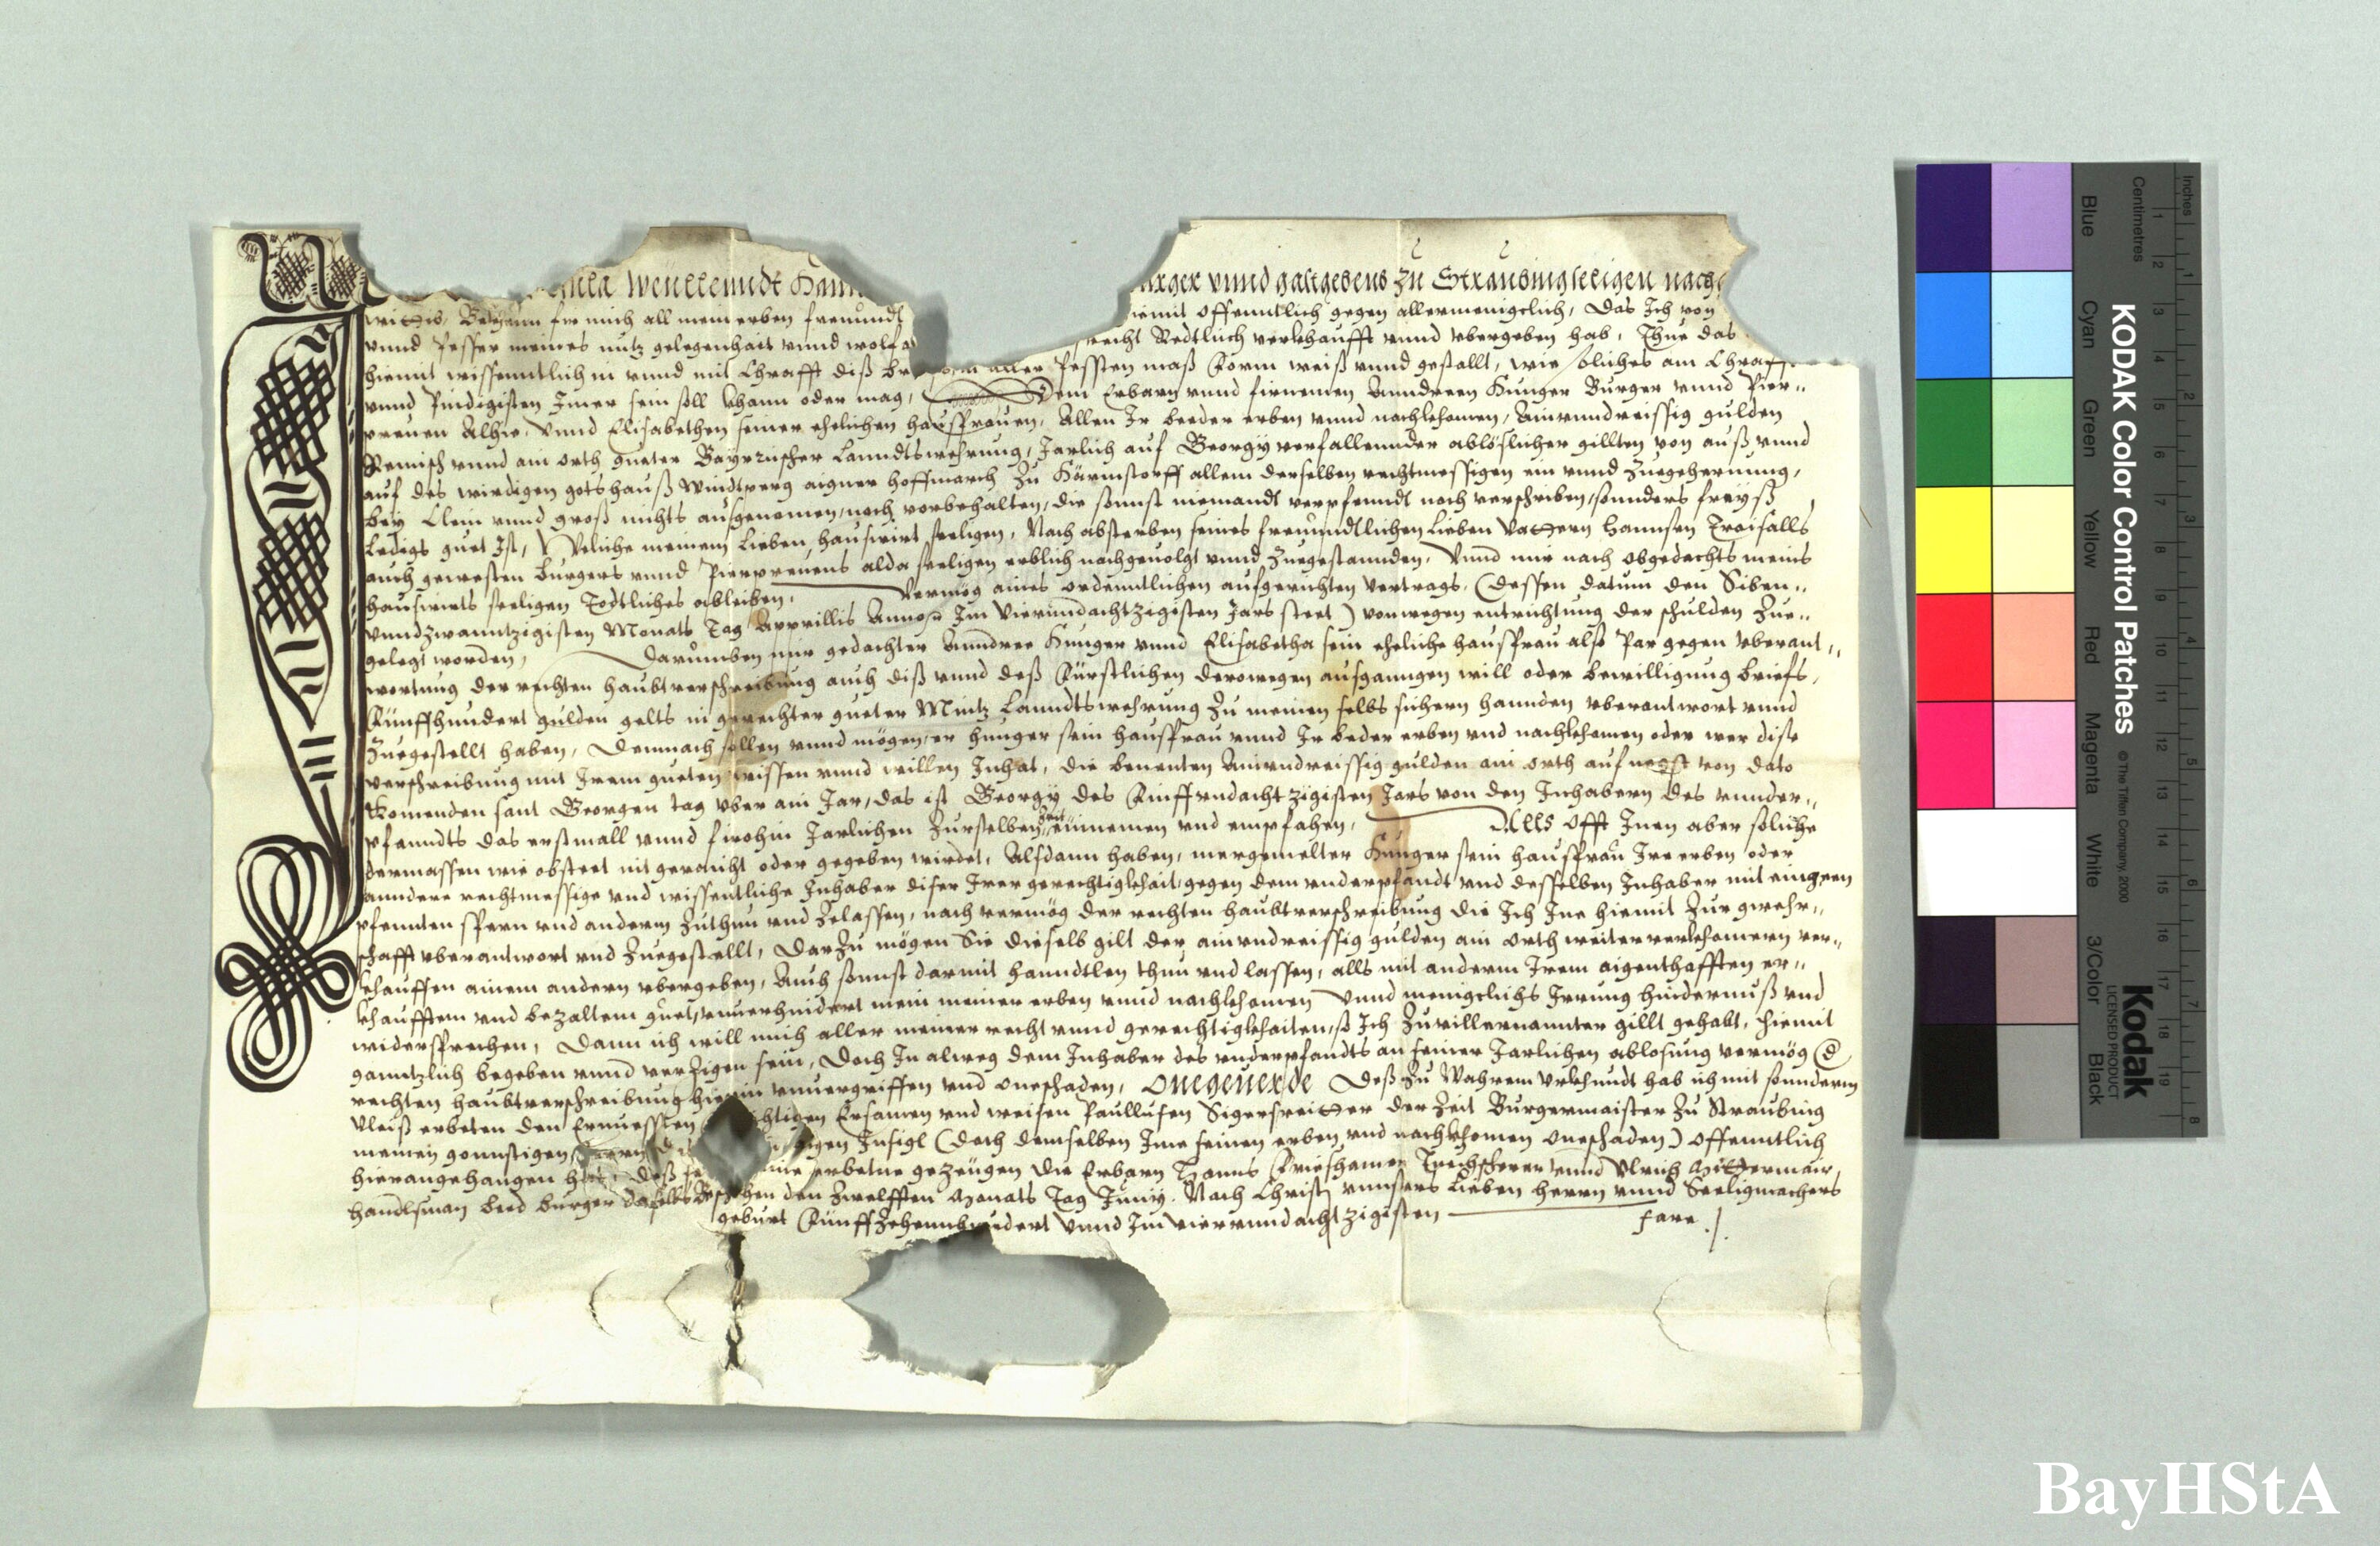 weullenndt Hann
urger vnnd gastgebens zu Straubing seeligen nach
wittib, Bekhenn für mich all mein erben freundt
hiemit offenntlich gegen allermenigclich, Das Ich von
vnnd Pesser meines nutz gelegenhait vnnd wolfa
recht Redtlich verkhaufft vnnd vbergeben hab, Thue das
hiemit wissenntlich in vnnd mit Chrafft diß br aller Pessten maß Form weiß vnnd gestallt, wie soliches am Chrafft
vnnd Pindigisten Imer sein soll khann oder mag, Dem Erbarn vnnd firnemen Anndreen Hunger Burger vnnd Pier„
preuen Alhie, Vnnd Elisabethen seiner ehelichen hausfrauen, Allen Ir beeder erben vnnd nachkhomen, Ainvndreissig gulden
Reinisch vnnd ain orth gueter Bayrischer Lanndtswehrung, Jarlich auf Georgy verfallennder ablöslicher gillten von auß vnnd
auf des wirdigen gotshauß Windtperg aigner hoffmarch zu Härmstorff allem derselben rechtmessigen ein vnnd zuegeherung,
bey Clein vnnd groß nichts ausgenomen, noch vorbehalten, die sonnst niemandt verpfenndt noch verschriben, sonnders freyß
Ledigs guet Ist, Weliche meinem Lieben hauswirt seeligen, Nach absterben seines freunndtlichen Lieben Vattern Hannsen Zraisalls
auch gewesten burgers vnnd Pierpreuens alda seeligen erblich nachgeuolgt vnnd zuegestannden, Vnnd mir nach obgedachts meins
hauswirts seeligen Todtliches ableiben, Vermög aines ordenntlichen aufgerichten Vertrags, (dessen datum den Siben„
vnndzwanntzigisten Monats Tag Apprillis Anno Im Vierundachtzigisten Jars steet) vonwegen entrichtung der schulden zue„
gelegt worden, Darumben mir gedachter Anndree Hunger vnnd Elisabetha sein eheliche hausfrau also Par gegen vberant„
wortung der rechten haubtverschreibung auch diß vnnd deß Fürstlichen derowegen ausganngen will oder bewilligung briefs,
Fünffhundert gulden gelts in gerechter gueter Müntz Lanndtswehrung zu meinen selbs sichern hannden vberantwort vnnd
zuegestellt haben, Demnach sollen vnnd mögen, er Hunger sein hausfrau vnnd Ir beder erben vnd nachkhomen oder wer dise
verschreibung mit Irem gueten wissen vnnd willen Inhat, die benenten Ainvndreissig gulden ain orth auf negst von dato
khomenden sant Georgen tag vber ain Jar, das ist Georgy des Fünffvndachtzigisten Jars von den Inhabern des vnnder„
pfanndts das erstmall vnnd firohin Jarlichen zurselben zeit einnemen vnd empfahen, Alls offt Inen aber soliche
dermassen wie obsteet nit geraicht oder gegeben wirdet, Alsdann haben, mergemelter Hunger sein hausfrau Ire erben oder
anndere rechtmessige vnd wissentliche Inhaber diser Irer gerechtigkhait, gegen dem vnderpfandt vnd desselben Inhaber mit eingeen
pfennten spern vnd anderm zuthun vnd zelassen, nach vermög der rechten haubtverschreibung die Ich Ine hiemit zur gwehr„
schafft vberantwort vnd zuegestellt, Darzu mögen Sie dieselb gilt der ainvndreissig gulden ain orth weiter verkhomern ver„
khauffen ainem andern vbergeben, Auch sonnst darmit hanndtlen thun vnd lassen, alls mit anderm Irem aigenthafften er„
khaufftem vnd bezaltem guet, vnuerhindert mein meiner erben vnnd nachkhomen vnnd menigclichs Irrung hindernuß vnd
widersprechen, Dann ich will mich aller meiner recht vnnd gerechtigkhaiten, so Ich zu villernannter gillt gehabt, hiemit
ganntzlich begeben vnnd verzigen sein, Doch In alweg dem Inhaber des vnderpfandts an seiner Jarlichen ablosung vermög d
rechten haubtverschreibung hierin vnuergriffen vnd oneschaden, Onegeuerde Deß zu Wahrem Vrkhundt hab ich mit sonnderm
Vleiß erbeten den Ernuessten chtigen Ersamen vnd weisen Paullusen Sigersreitter der Zeit Burgermaister zu Straubing
meinen gonnstigen aigen Insigl (doch demselben Ime seinen erben vnd nachkhomen oneschaden) offenntlich
hierangehangen hat, deß erbetne gezeugen die Erbarn Hanns Frieshamer Tuechscherer vnnd Vlrich Mittermair,
handlsman bed burger daselbs Beschehen den Zwelfften Monats Tag Juny, Nach Christi vnnsers Lieben herrn vnnd Seeligmachers
geburt Fünffzehennhundert vnnd Im vierunndachtzigisten Jare
KODAK Color Control Patches
© The Tiffen Company, 2000
Kodak
LICENSED PRODUCT
Blue Cyan Green Yellow Red Magenta White 3/Color Black
Inches
Centimetres
BayHStA